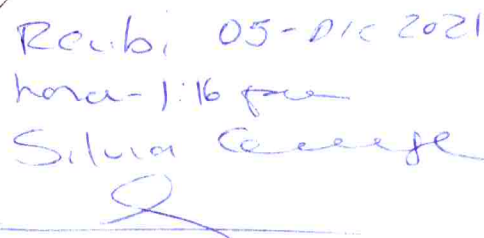 Recibi 05-Dic 2021
hora-1:16 pm
Silvia